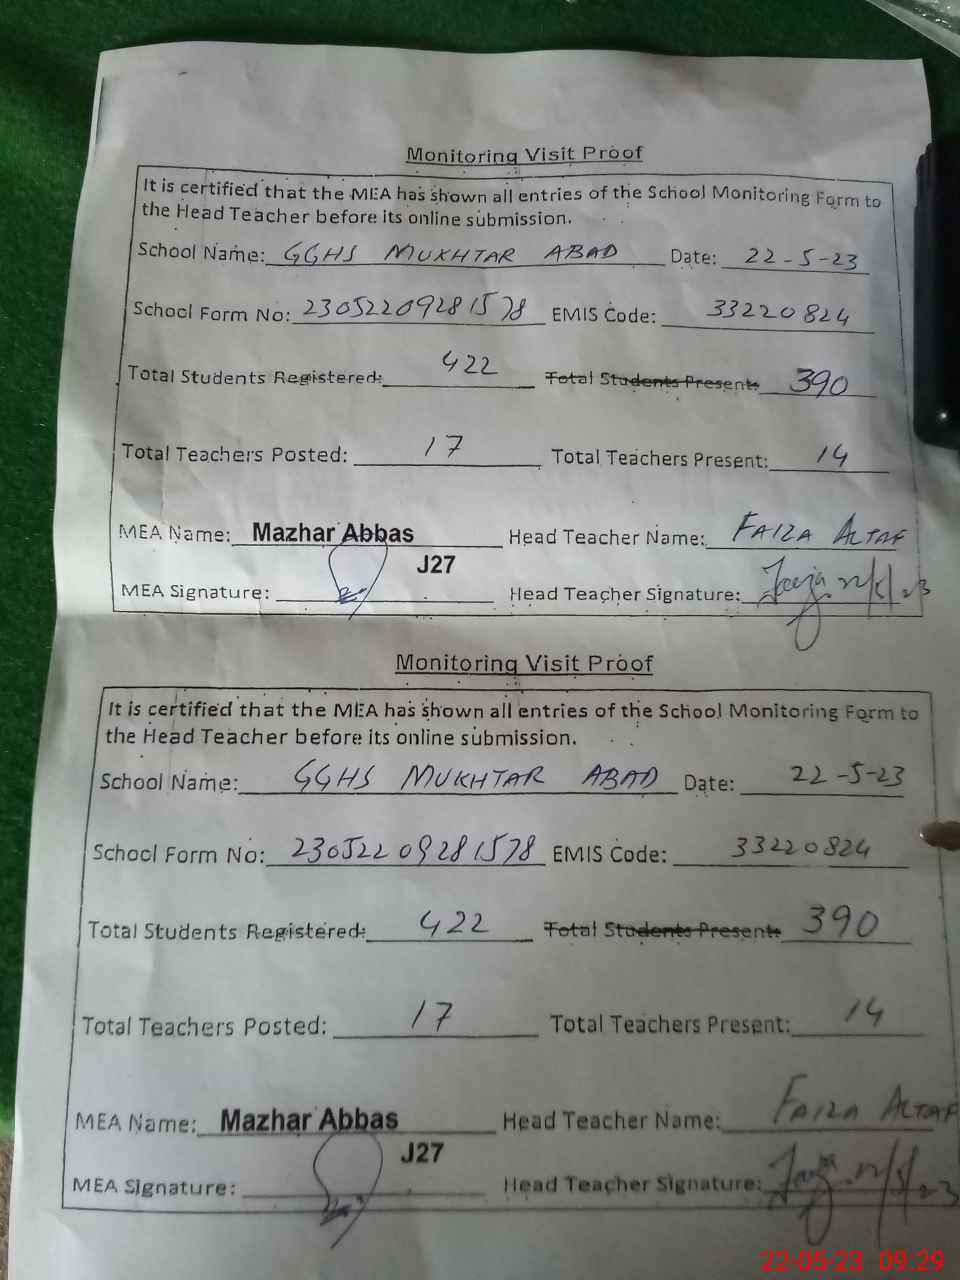 Monitoring Visit Proof
It is certified that the MEA has shown all entries of the School Monitoring Form to
the Head Teacher before its online submission.
School Name: GGHS MUKHTAR ABAD Date: 22-5-23
School Form No: 23052209281578 EMIS Code: 33220824
Total Students Registered: 422 Total Students Present: 390
Total Teachers Posted: 17 Total Teachers Present: 14
MEA Name: Mazhar Abbas Head Teacher Name: FAIZA ALTAF
J27
MEA Signature: Head Teacher Signature: 22/5/23
Monitoring Visit Proof
It is certified that the MEA has shown all entries of the School Monitoring Form to
the Head Teacher before its online submission.
School Name: GGHS MUKHTAR ABAD Date: 22-5-23
School Form No: 23052209281578 EMIS Code: 33220824
Total Students Registered: 422 Total Students Present: 390
Total Teachers Posted: 17 Total Teachers Present: 14
MEA Name: Mazhar Abbas Head Teacher Name: FAIZA ALTAF
J27
MEA Signature: Head Teacher Signature: 22/5/23
22-05-23 09:29